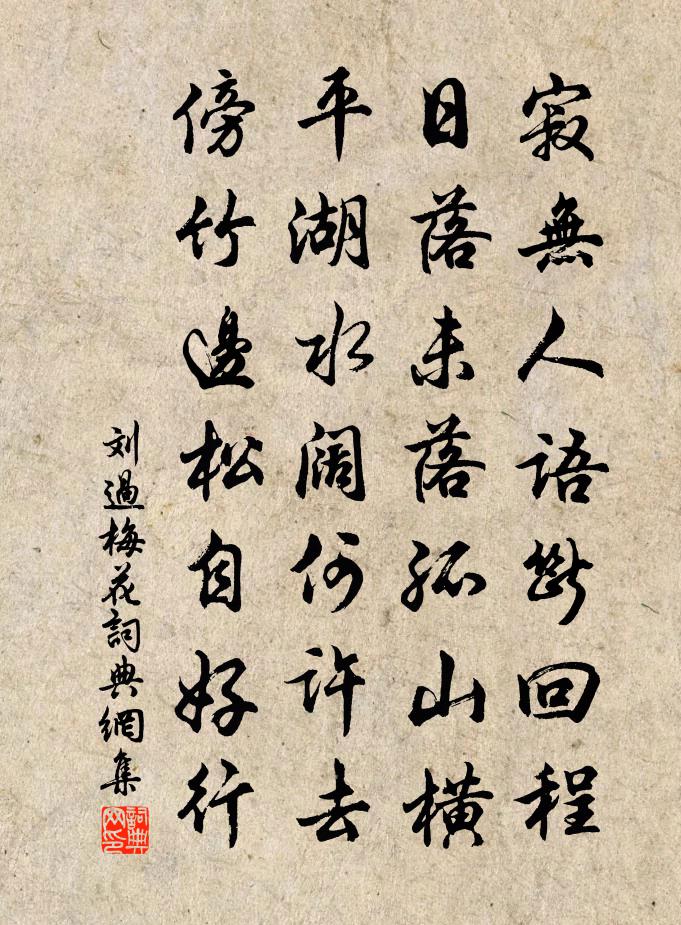 寂無人語斷回程
日落未落孤山橫
平湖水阔何許去
傍竹邊松自好行
刘過梅花詞典網集
詞典网印